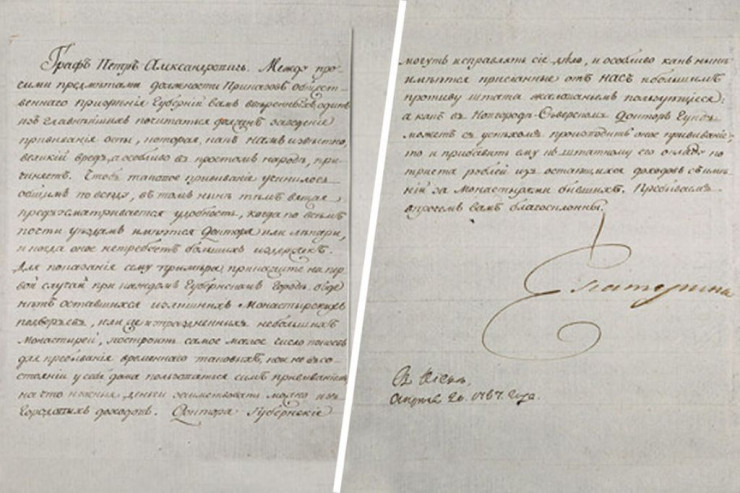 Графъ Петръ Александровичь. Между про-
чими предметами должности Приказовъ Общест-
веннаго призрѣнія Губерній Вамъ ввѣренныхъ, одинъ
изъ главнѣйшихъ почитаться должно заведеніе
прививанія оспы, которая, какъ намъ извѣстно,
великій вредъ, а особливо въ простомъ народѣ, при-
чиняетъ. Чтобъ таковое прививаніе учинилось
общимъ повсюду, въ томъ нынѣ тѣмъ вящая
предусматривается удобность, когда по всѣмъ
почти уѣздамъ имѣются Доктора или лѣкари,
и когда оное не требуетъ большихъ издержекъ.
Для показанія сему примѣра, прикажите на пер-
вой случай при каждомъ Губернскомъ городѣ, обра-
оставшихся излишнихъ Монастырскихъ
или изъ упраздненныхъ небольшихъ
Монастырей, построить самое малое число покоевъ
для пребыванія временнаго таковыхъ, кои не въ со-
стояніи у себя дома пользоваться симъ прививаніемъ
на что нужныя деньги заимствовать можно изъ
городскихъ доходовъ. Доктора Губернскіе
могутъ исправлять сіе дѣло, и особливо какъ нынѣ
имѣются присланные отъ НАСЪ и большимъ
противу штата жалованьемъ пользующіеся;
а какъ въ Новгородѣ-Сѣверскомъ Докторъ Гунъ
можетъ съ успѣхомъ производить оное прививаніе,
то и прибавить ему къ штатному его окладу по
триста рублей изъ остающихся доходовъ съ имѣ-
ній за Монастырями бывшихъ. Пребываемъ
впрочемъ Вамъ благосклонны.
Екатерина
Въ Кіевѣ,
Апрѣля 20. 1787. года.